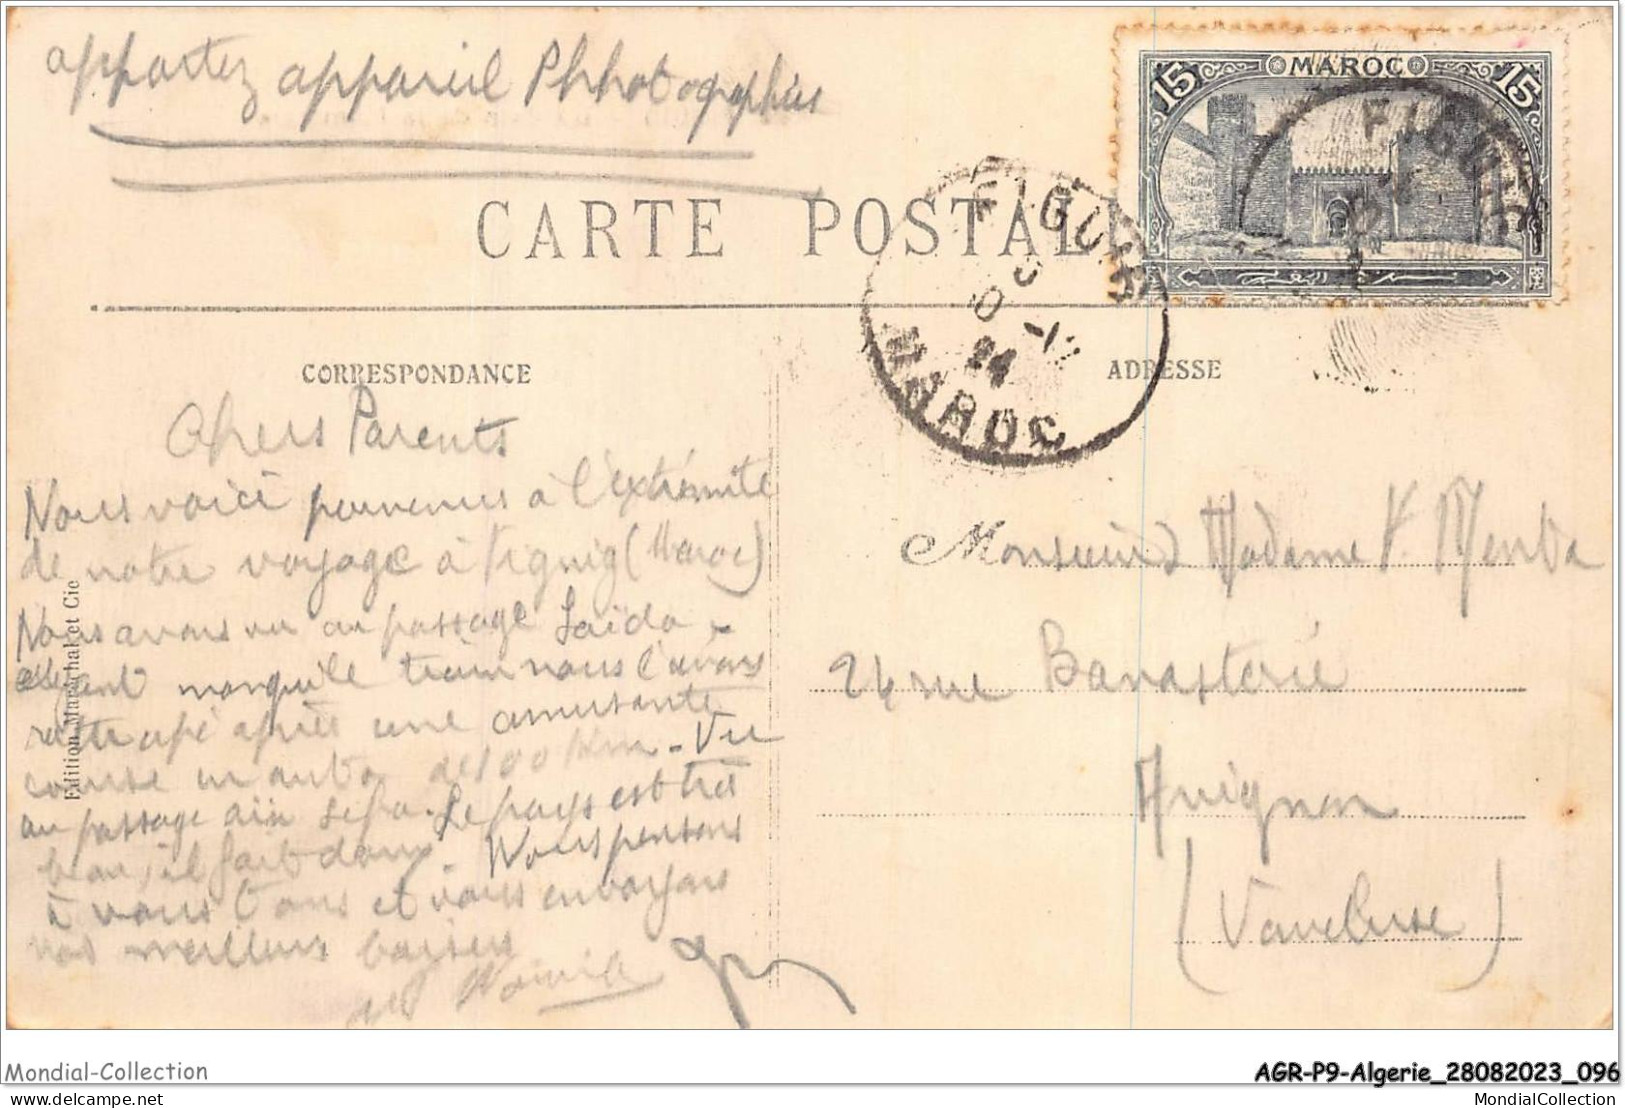 appartez appareil Phhotographies
15 MAROC 15
FIGUIG
CARTE POSTALE
FIGUIG
MAROC
CORRESPONDANCE
ADRESSE
Chers Parents
Nous voici parvenus à l'extrémité
de notre voyage à Figuig (Maroc)
Nous avons vu au passage Saïda
ayant manqué le train nous l'avons
rattrapé après une amusante
course en auto de 100 Km. Vu
au passage aïn Sefra. Le pays est très
beau, il fait doux. Nous pensons
à vous tous et vous envoyons
nos meilleurs baisers
Monsieur Madame
24 rue Banasterie
Avignon
(Vaucluse)
Edition Maréchal et Cie
Mondial-Collection
AGR-P9-Algerie_28082023_096
delcampe.net
MondialCollection